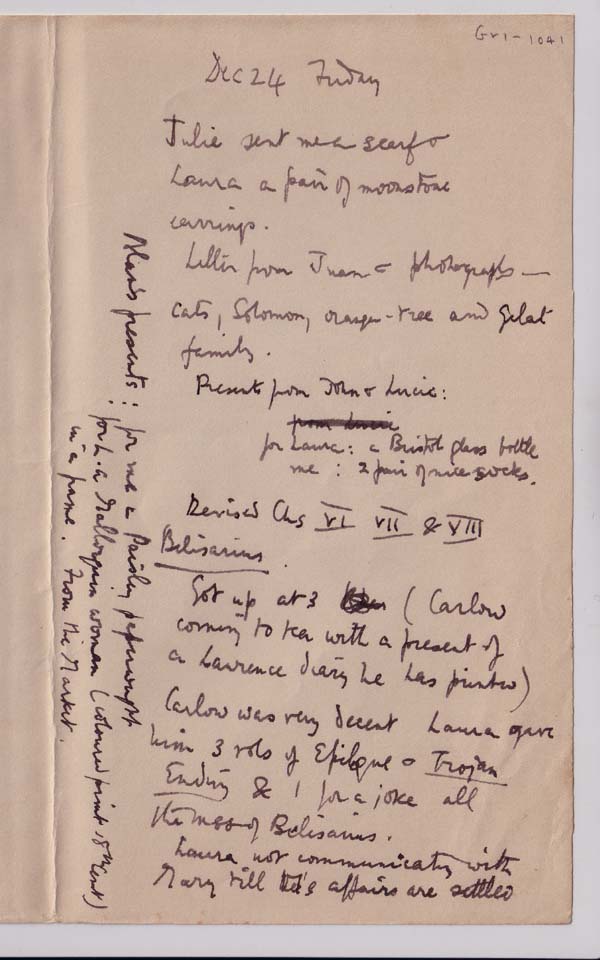 Gr1-1041
Dec 24 Friday
Julie sent me a scarf &
Laura a pair of moonstone
earrings.
Letter from Juan & photographs —
cats, Solomon, orange-tree and Gelat
family.
Presents from John & Lucie:
from Lucie
for Laura: a Bristol glass bottle
me: 2 pair of nice socks.
Revised Chs VI VII & VIII
Belisarius.
Got up at 3 (Carlow
coming to tea with a present of
a Lawrence diary he has printed)
Carlow was very decent Laura gave
him 3 vols of Epilogue & Trojan
Ending & I for a joke all
the mss of Belisarius.
Laura not communicating with
Mary till affairs are settled
Alan's presents: for me a Paisley paperweight
for L. a Mallorquin woman (coloured print 18th Cent)
in a frame. From the Market.